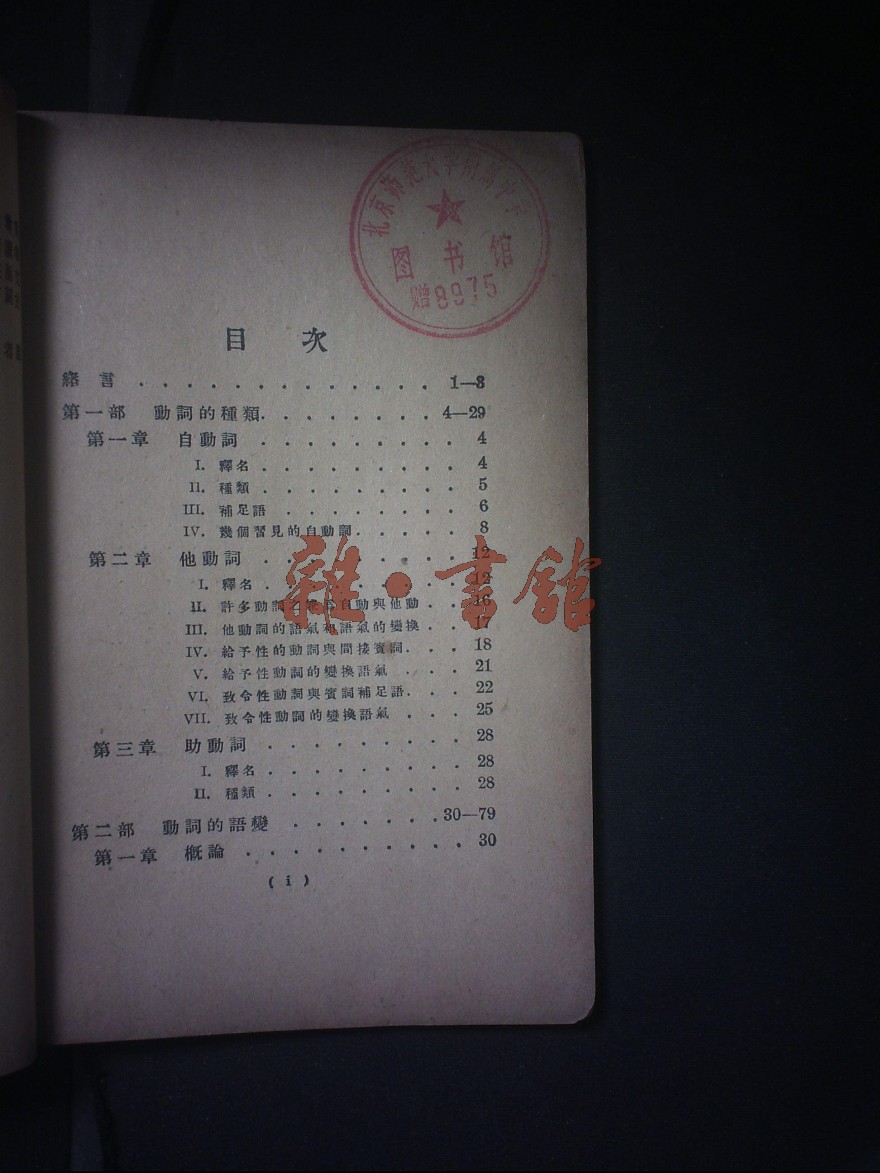 北京师范大学附属中学
图书馆
赠8975
目次
緒言 . . . . . . . . . . . . . 1—3
第一部 動詞的種類. . . . . . . 4—29
第一章 自動詞 . . . . . . . . . 4
I. 釋名 . . . . . . . . . 4
II. 種類 . . . . . . . . . 5
III. 補足語 . . . . . . . . 6
IV. 幾個習見的自動詞. . . . . 8
第二章 他動詞 . . . . . . . . . 12
I. 釋名 . . . . . . . . . 12
II. 許多動詞之兼爲自動與他動 . . 16
III. 他動詞的語氣和語氣的變換 . . 17
IV. 給予性的動詞與間接賓詞. . . 18
V. 給予性動詞的變換語氣 . . . 21
VI. 致令性動詞與賓詞補足語. . . 22
VII. 致令性動詞的變換語氣 . . . 25
第三章 助動詞 . . . . . . . . . 28
I. 釋名 . . . . . . . . . 28
II. 種類 . . . . . . . . . 28
第二部 動詞的語變 . . . . . . . 30—79
第一章 概論 . . . . . . . . . . 30
( i )
雜·書館